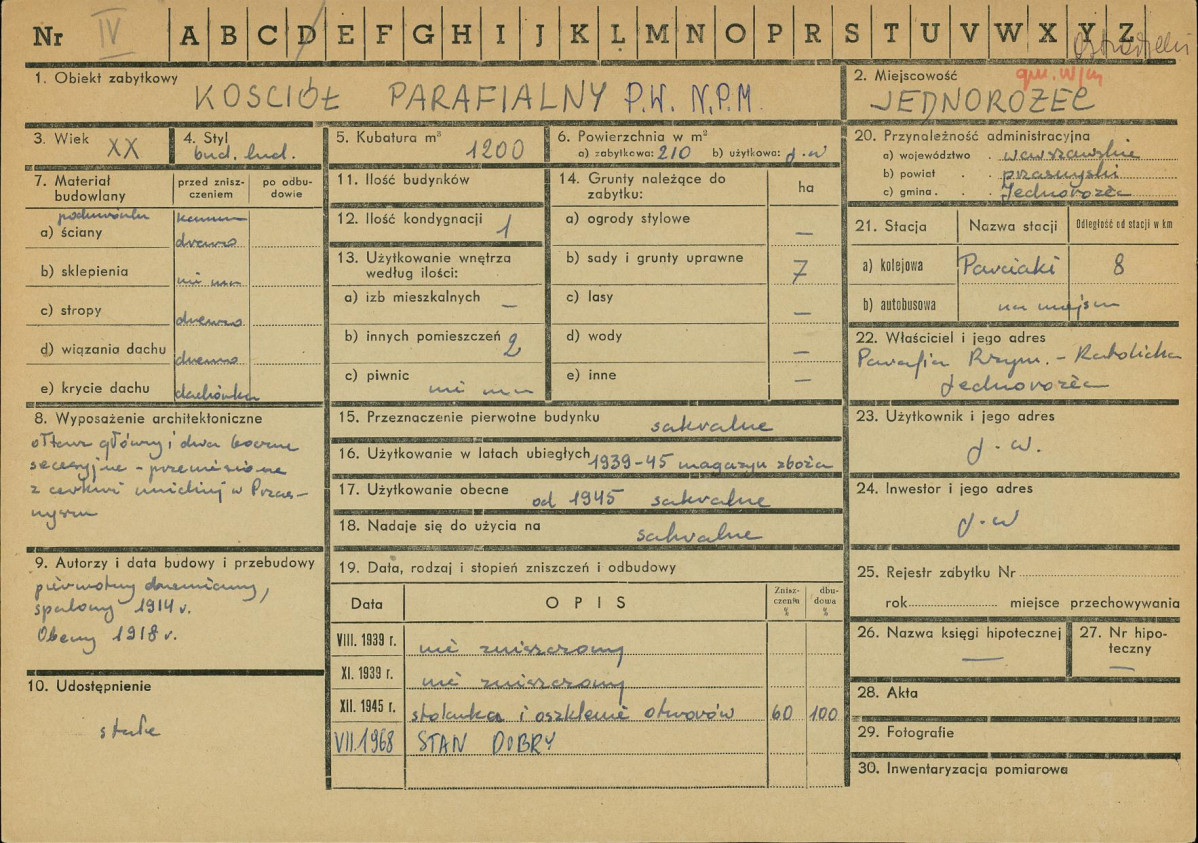 Nr IV A B C D E F G H I J K L M N O P R S T U V W X Y Z
1. Obiekt zabytkowy
KOSCIÓŁ PARAFIALNY P.W. N.P.M.
2. Miejscowość
JEDNOROŻEC
3. Wiek XX
4. Styl
bud. lud.
5. Kubatura m³ 1200
6. Powierzchnia w m²
a) zabytkowa: 210 b) użytkowa: j.w
20. Przynależność administracyjna
a) województwo . warszawskie
b) powiat . . przasnyski
c) gmina . . Jednorożec
7. Materiał budowlany
przed zniszczeniem
po odbudowie
podmurówka kamień
a) ściany drewno
b) sklepienia nie ma
c) stropy drewno
d) wiązania dachu drewno
e) krycie dachu dachówka
11. Ilość budynków
12. Ilość kondygnacji 1
13. Użytkowanie wnętrza
według ilości:
a) izb mieszkalnych –
b) innych pomieszczeń 2
c) piwnic nie ma
14. Grunty należące do
zabytku:
ha
a) ogrody stylowe –
b) sady i grunty uprawne 7
c) lasy –
d) wody –
e) inne –
21. Stacja Nazwa stacji Odległość od stacji w km
a) kolejowa Parciaki 8
b) autobusowa na miejscu
22. Właściciel i jego adres
Parafia Rzym. - Katolicka
Jednorożec
8. Wyposażenie architektoniczne
ołtarz główny i dwa boczne
secesyjne - przeniesione
z cerkwi unickiej w Przas-
nyszu
15. Przeznaczenie pierwotne budynku sakralne
16. Użytkowanie w latach ubiegłych 1939-45 magazyn zboża
17. Użytkowanie obecne od 1945 sakralne
18. Nadaje się do użycia na sakralne
23. Użytkownik i jego adres
j.w.
24. Inwestor i jego adres
j.w
9. Autorzy i data budowy i przebudowy
pierwotny drewniany,
spalony 1914 r.
Obecny 1918 r.
19. Data, rodzaj i stopień zniszczeń i odbudowy
Data OPIS Zniszczenia % dbudowa %
VIII. 1939 r. nie zniszczony
XI. 1939 r. nie zniszczony
XII. 1945 r. stolarka i oszklenie otworów 60 100
VII.1968 STAN DOBRY
25. Rejestr zabytku Nr
rok miejsce przechowywania
26. Nazwa księgi hipotecznej –
27. Nr hipoteczny –
28. Akta
29. Fotografie
30. Inwentaryzacja pomiarowa
10. Udostępnienie
stałe